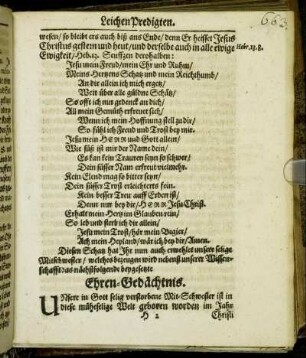 Leichen Predigten.
663
wesen/ so bleibt ers auch biß ans Ende/ denn Er heisset Jesus
Christus gestern und heut/ und derselbe auch in alle ewige
Ewigkeit/ Hebr. 13. Seuffzen derohalben:
Hebr. 13. 8.
Jesu mein Freud/ mein Ehr und Ruhm/
Meins Hertzens Schatz und mein Reichthumb/
An die allein ich mich ergetz/
Weit über alle güldne Schätz/
So offt ich nur gedenck an dich/
All mein Gemüth erfreuet sich/
Wenn ich mein Hoffnung stell zu dir/
So fühl ich Freud und Trost bey mir.
Jesu mein HERR und Gott allein/
Wie süß ist mir der Name dein/
Es kan kein Trauren seyn so schwer/
Dein süsser Nam erfreut vielmehr.
Kein Elend mag so bitter seyn/
Dein süsser Trost erleichterts fein.
Kein besser Treu auff Erden ist/
Denn nur bey dir/ HERR Jesu Christ.
Erhalt mein Hertz im Glauben rein/
So leb und sterb ich dir allein/
Jesu mein Trost/ hör mein Begier/
Ach mein Heyland/ wär ich bey dir/ Amen.
Diesen Schatz hat Ihr nun auch erwehlet unsere selige
Mitschwester/ welches bezeugen wird nebenst unserer Wissen-
schafft das nächstfolgende beygesetzte
Ehren-Gedächtnis.
Unsere in Gott selig verstorbene Mit-Schwester ist in
diese mühselige Welt geboren worden im Jahr
H 2
Christi